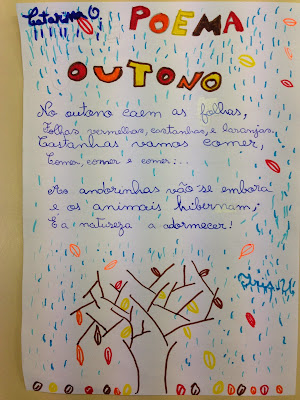 Catarina O.
POEMA
OUTONO
No outono caem as folhas,
Folhas vermelhas, castanhas, e laranjas.
Castanhas vamos comer,
Comer, comer e comer...
As andorinhas vão-se embora
e os animais hibernam,
É a natureza a adormecer!